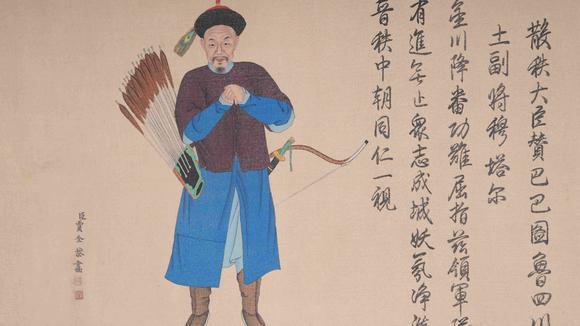 散秩大臣贊巴巴圖魯四川
土副將穆塔尔
金川降番功難屈指茲領軍
有進無止眾志成城妖氛淨
晉秩中朝同仁一視
臣賈全恭畫